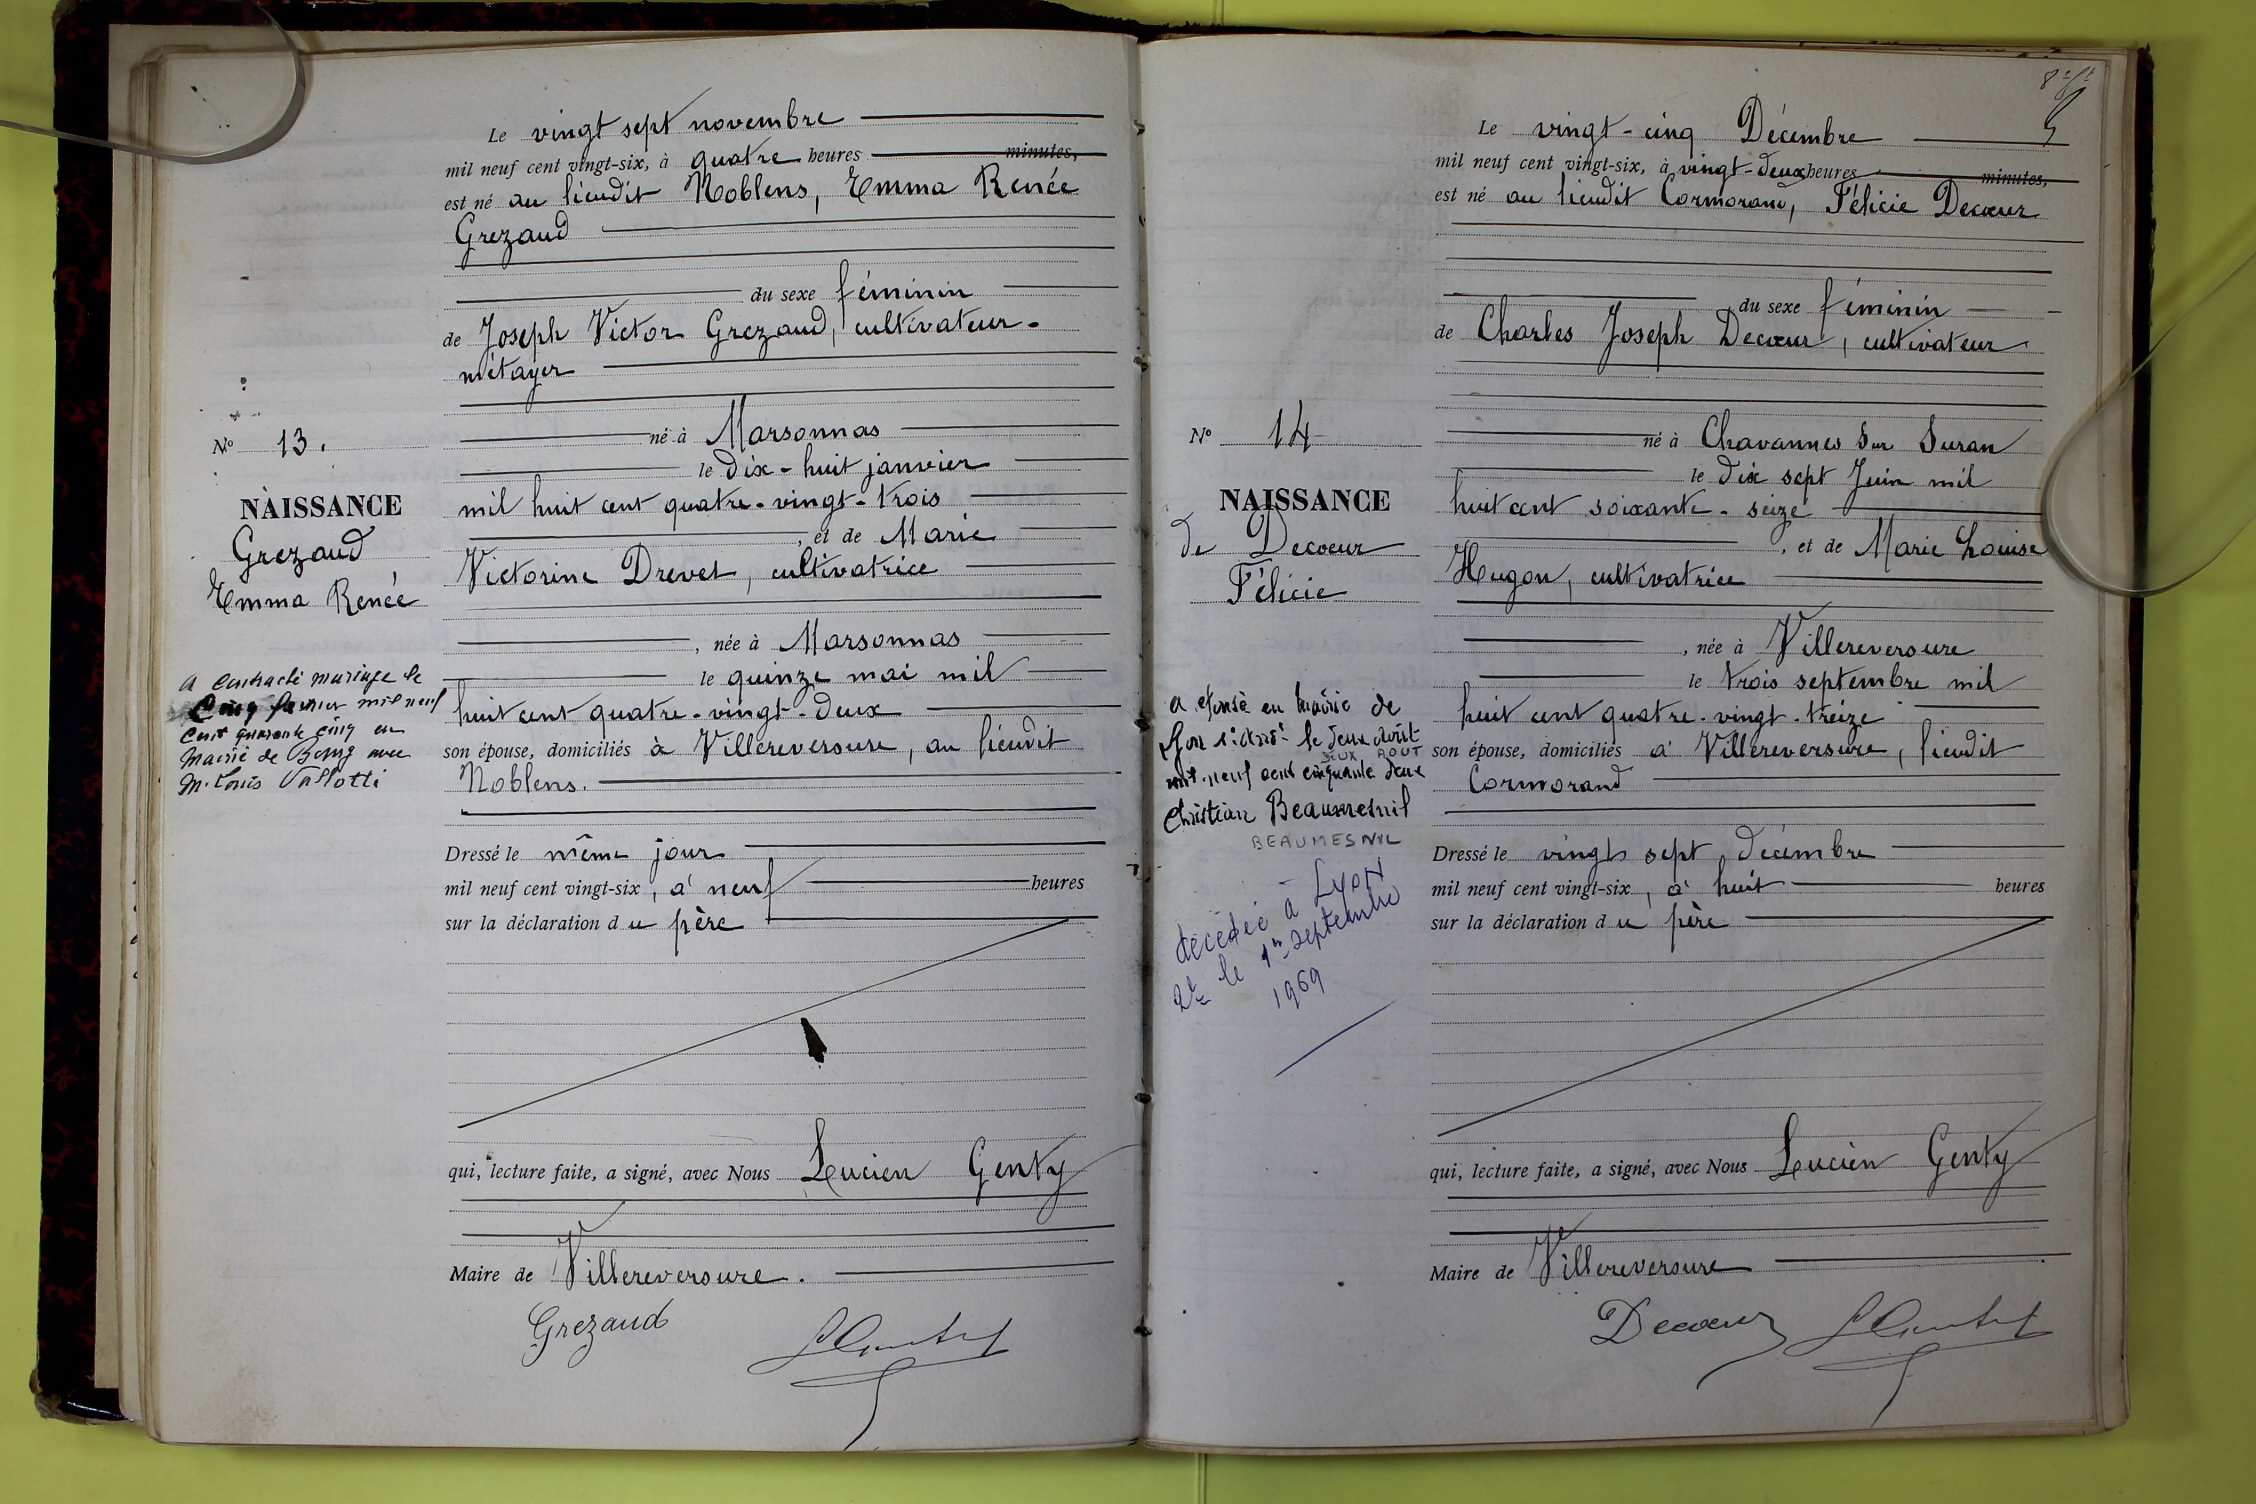 Le vingt sept novembre
mil neuf cent vingt-six, à quatre heures minutes,
est né au lieudit Noblens, Emma Renée
Grezaud
du sexe féminin
de Joseph Victor Grezaud, cultivateur-
métayer
né à Marsonnas
le dix-huit janvier
mil huit cent quatre-vingt-trois
, et de Marie
Victorine Drevet, cultivatrice
, née à Marsonnas
le quinze mai mil
huit cent quatre-vingt-deux
son épouse, domiciliés à Villereversure, au lieudit
Noblens.
Dressé le même jour
mil neuf cent vingt-six, à neuf heures
sur la déclaration du père
qui, lecture faite, a signé, avec Nous Lucien Genty
Maire de Villereversure.
Grezaud
No 13.
NAISSANCE
Grezaud
Emma Renée
a contracté mariage le
Cinq février mil neuf
cent quarante cinq en
Mairie de Bourg avec
M. Louis Vallotti
8
Le vingt-cinq Décembre
mil neuf cent vingt-six, à vingt-deux heures minutes,
est né au lieudit Cormorand, Félicie Decœur
du sexe féminin
de Charles Joseph Decœur, cultivateur
né à Chavannes sur Suran
le dix sept Juin mil
huit cent soixante-seize
, et de Marie Louise
Hugon, cultivatrice
, née à Villereversure
le trois septembre mil
huit cent quatre-vingt-treize
son épouse, domiciliés à Villereversure, lieudit
Cormorand
Dressé le vingt sept décembre
mil neuf cent vingt-six, à huit heures
sur la déclaration du père
qui, lecture faite, a signé, avec Nous Lucien Genty
Maire de Villereversure
Decœur
No 14
NAISSANCE
de Decoeur
Félicie
a épousé en mairie de
Lyon le deux Août
DEUX AOUT
mil-neuf cent cinquante deux
Christian Beaumesnil
BEAUMESNIL
décédée à Lyon
2e le 1er septembre
1969